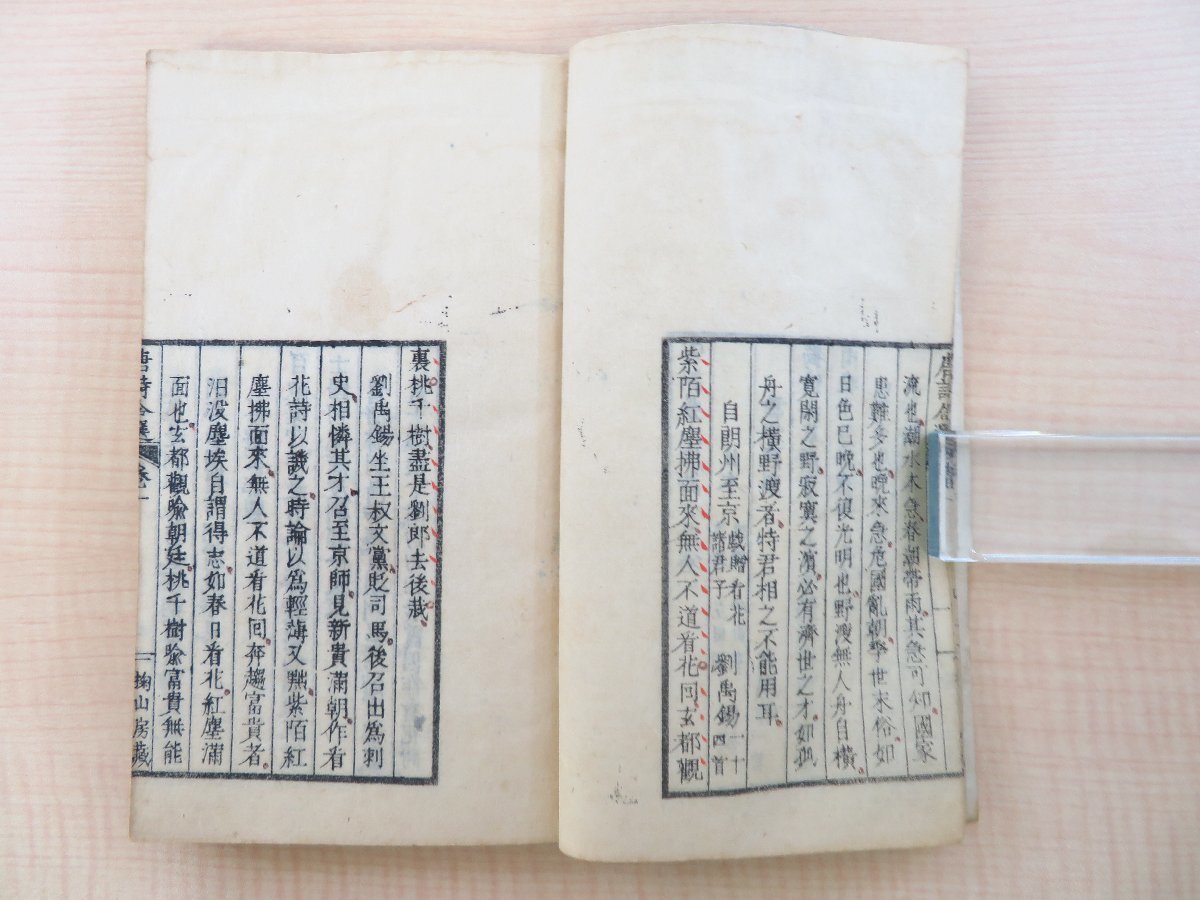 流也潮水本急春潮帶雨其急可知國家
患難多也晚來急危國亂朝季世末俗如
日色已晚不復光明也野渡無人舟自橫
寬閑之野寂寞之濱必有濟世之才如孤
舟之橫野渡者特君相之不能用耳
自朗州至京戲贈看花諸君子 劉禹錫一十四首
紫陌紅塵拂面來無人不道看花回玄都觀
裏桃千樹盡是劉郎去後栽
劉禹錫坐王叔文黨貶司馬後召出爲刺
史相憐其才召至京師見新貴滿朝作看
花詩以譏之時論以爲輕薄又黜紫陌紅
塵拂面來無人不道看花回奔趨富貴者
汨沒塵埃自謂得志如春日看花紅塵滿
面也玄都觀喩朝廷桃千樹喩富貴無能
唐詩合選 卷一 掬山房藏